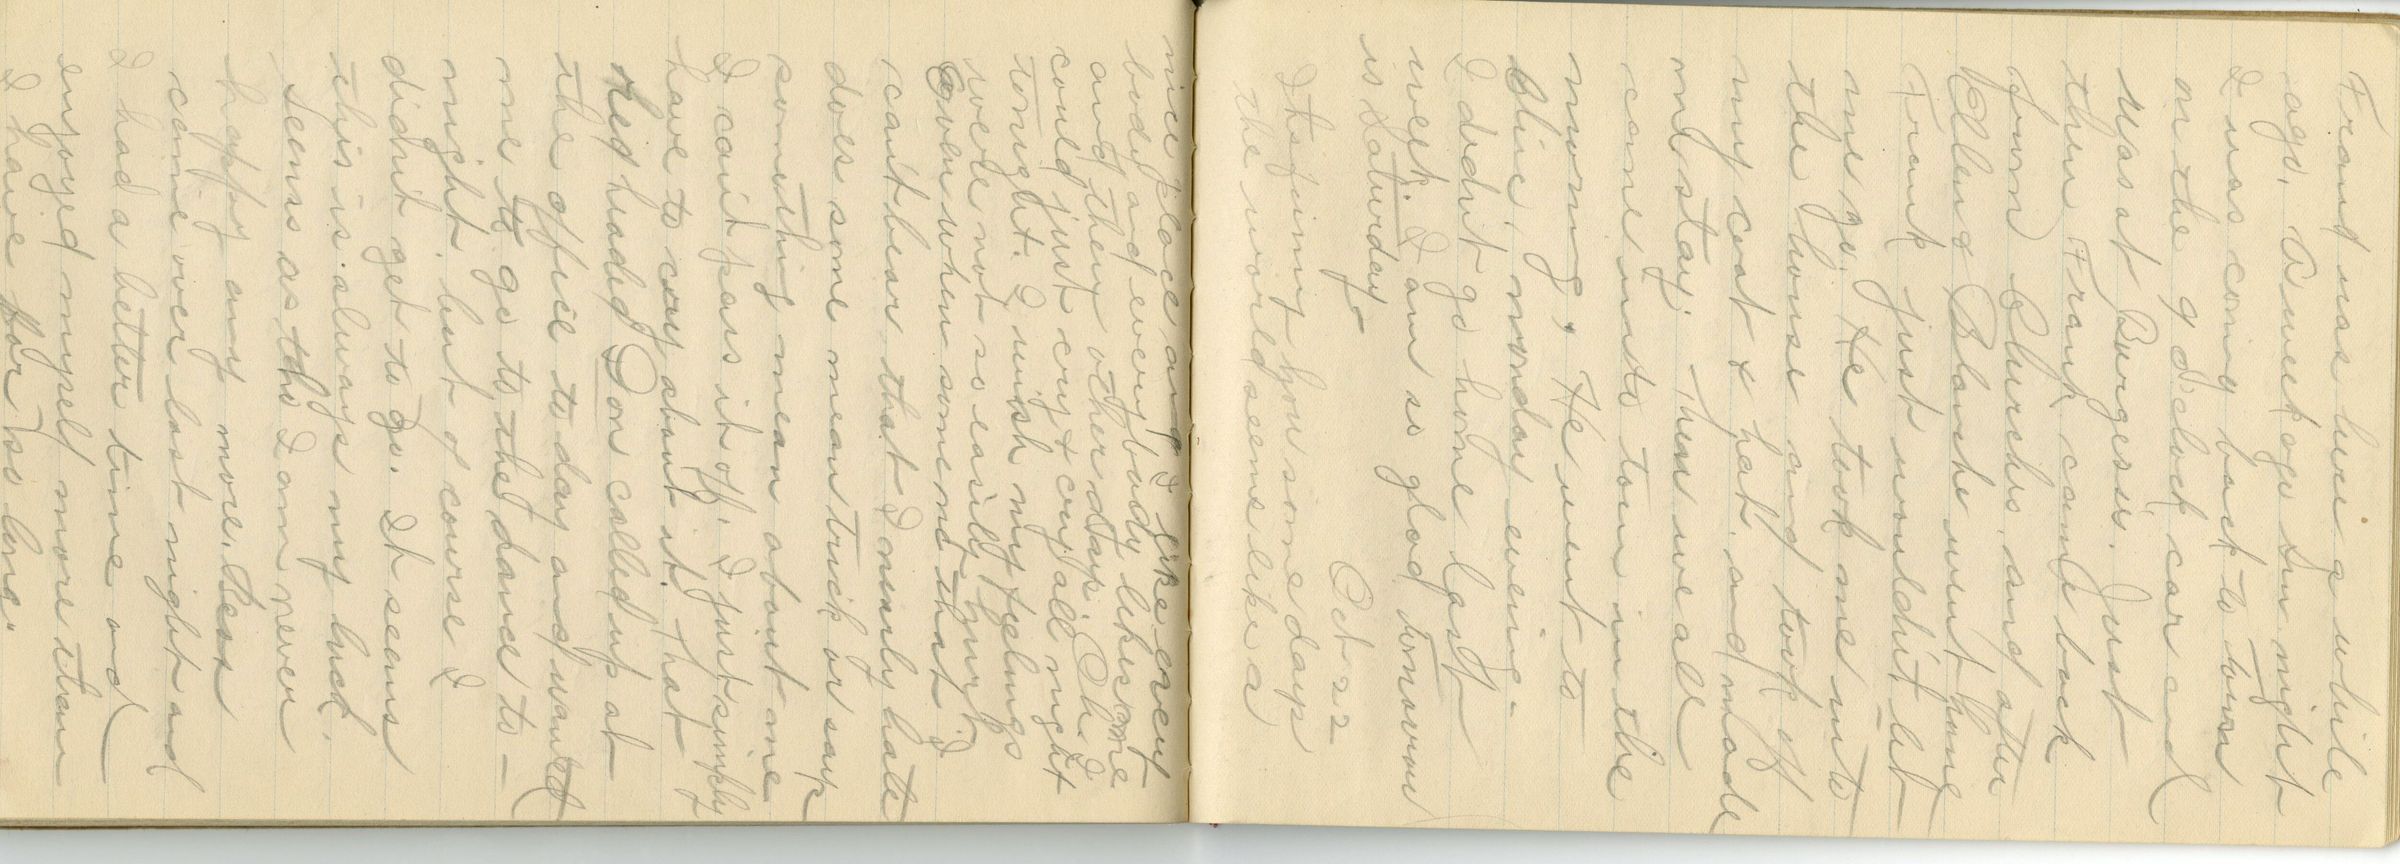 Frank was here a while
ago. A week ago Sun night
I was coming back to town
on the 9 o'clock car and
was at Burgess. Just
then Frank came back
from Church, and after
Ellen & Blanche went home
Frank just wouldn't let
me go. He took me into
the house and took off
my coat & hat, and made
me stay. Then we all
came into town in the
morning. He went to
Olive, monday evening.
I didn't go home last
week. I am so glad tomorrow
is Saturday
Oct 22
Its funny how some days
the world seems like a
nice place and I like every
body and everybody likes me
and then other days. Oh I
could just cry & cry all night
tonight. I wish my feelings
were not so easily hurt
Even when someone that I
cant bear that I nearly hate
does some mean trick or says
something mean about me
I cant pass it off, I just simply
have to cry about it. That
red headed Don called up at
the office to day and wanted
me to go to the dance to-
night, but of course I
didnt get to go. It seems
this is always my luck.
Seems as tho I am never
happy any more. Bess
came over last night and
I had a better time and
enjoyed myself more than
I have for so long.